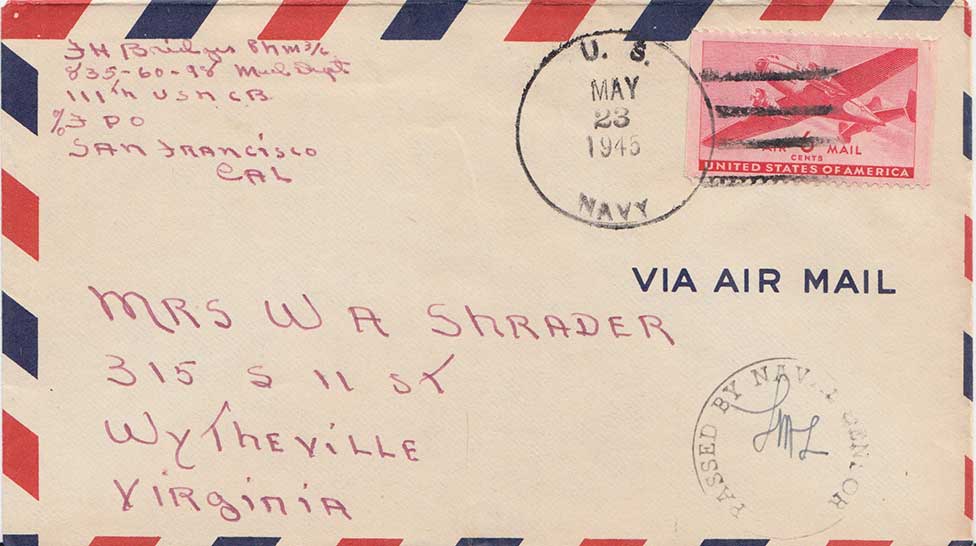 J H Bridges PhM3/c
835-60-98 Med Dept
111th USNCB
℅ F P O
San Francisco
Cal
U. S.
MAY
23
1945
NAVY
AIR 6 MAIL
CENTS
UNITED STATES OF AMERICA
VIA AIR MAIL
MRS W A SHRADER
315 S 11 St
Wytheville
Virginia
PASSED BY NAVAL CENSOR